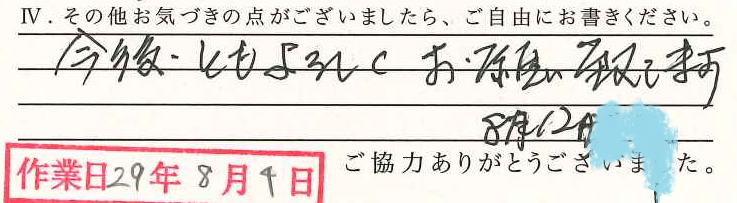 Ⅳ．その他お気づきの点がございましたら、ご自由にお書きください。
今後ともよろしくお願い致します
8月12日
ご協力ありがとうございました。
作業日29年8月9日